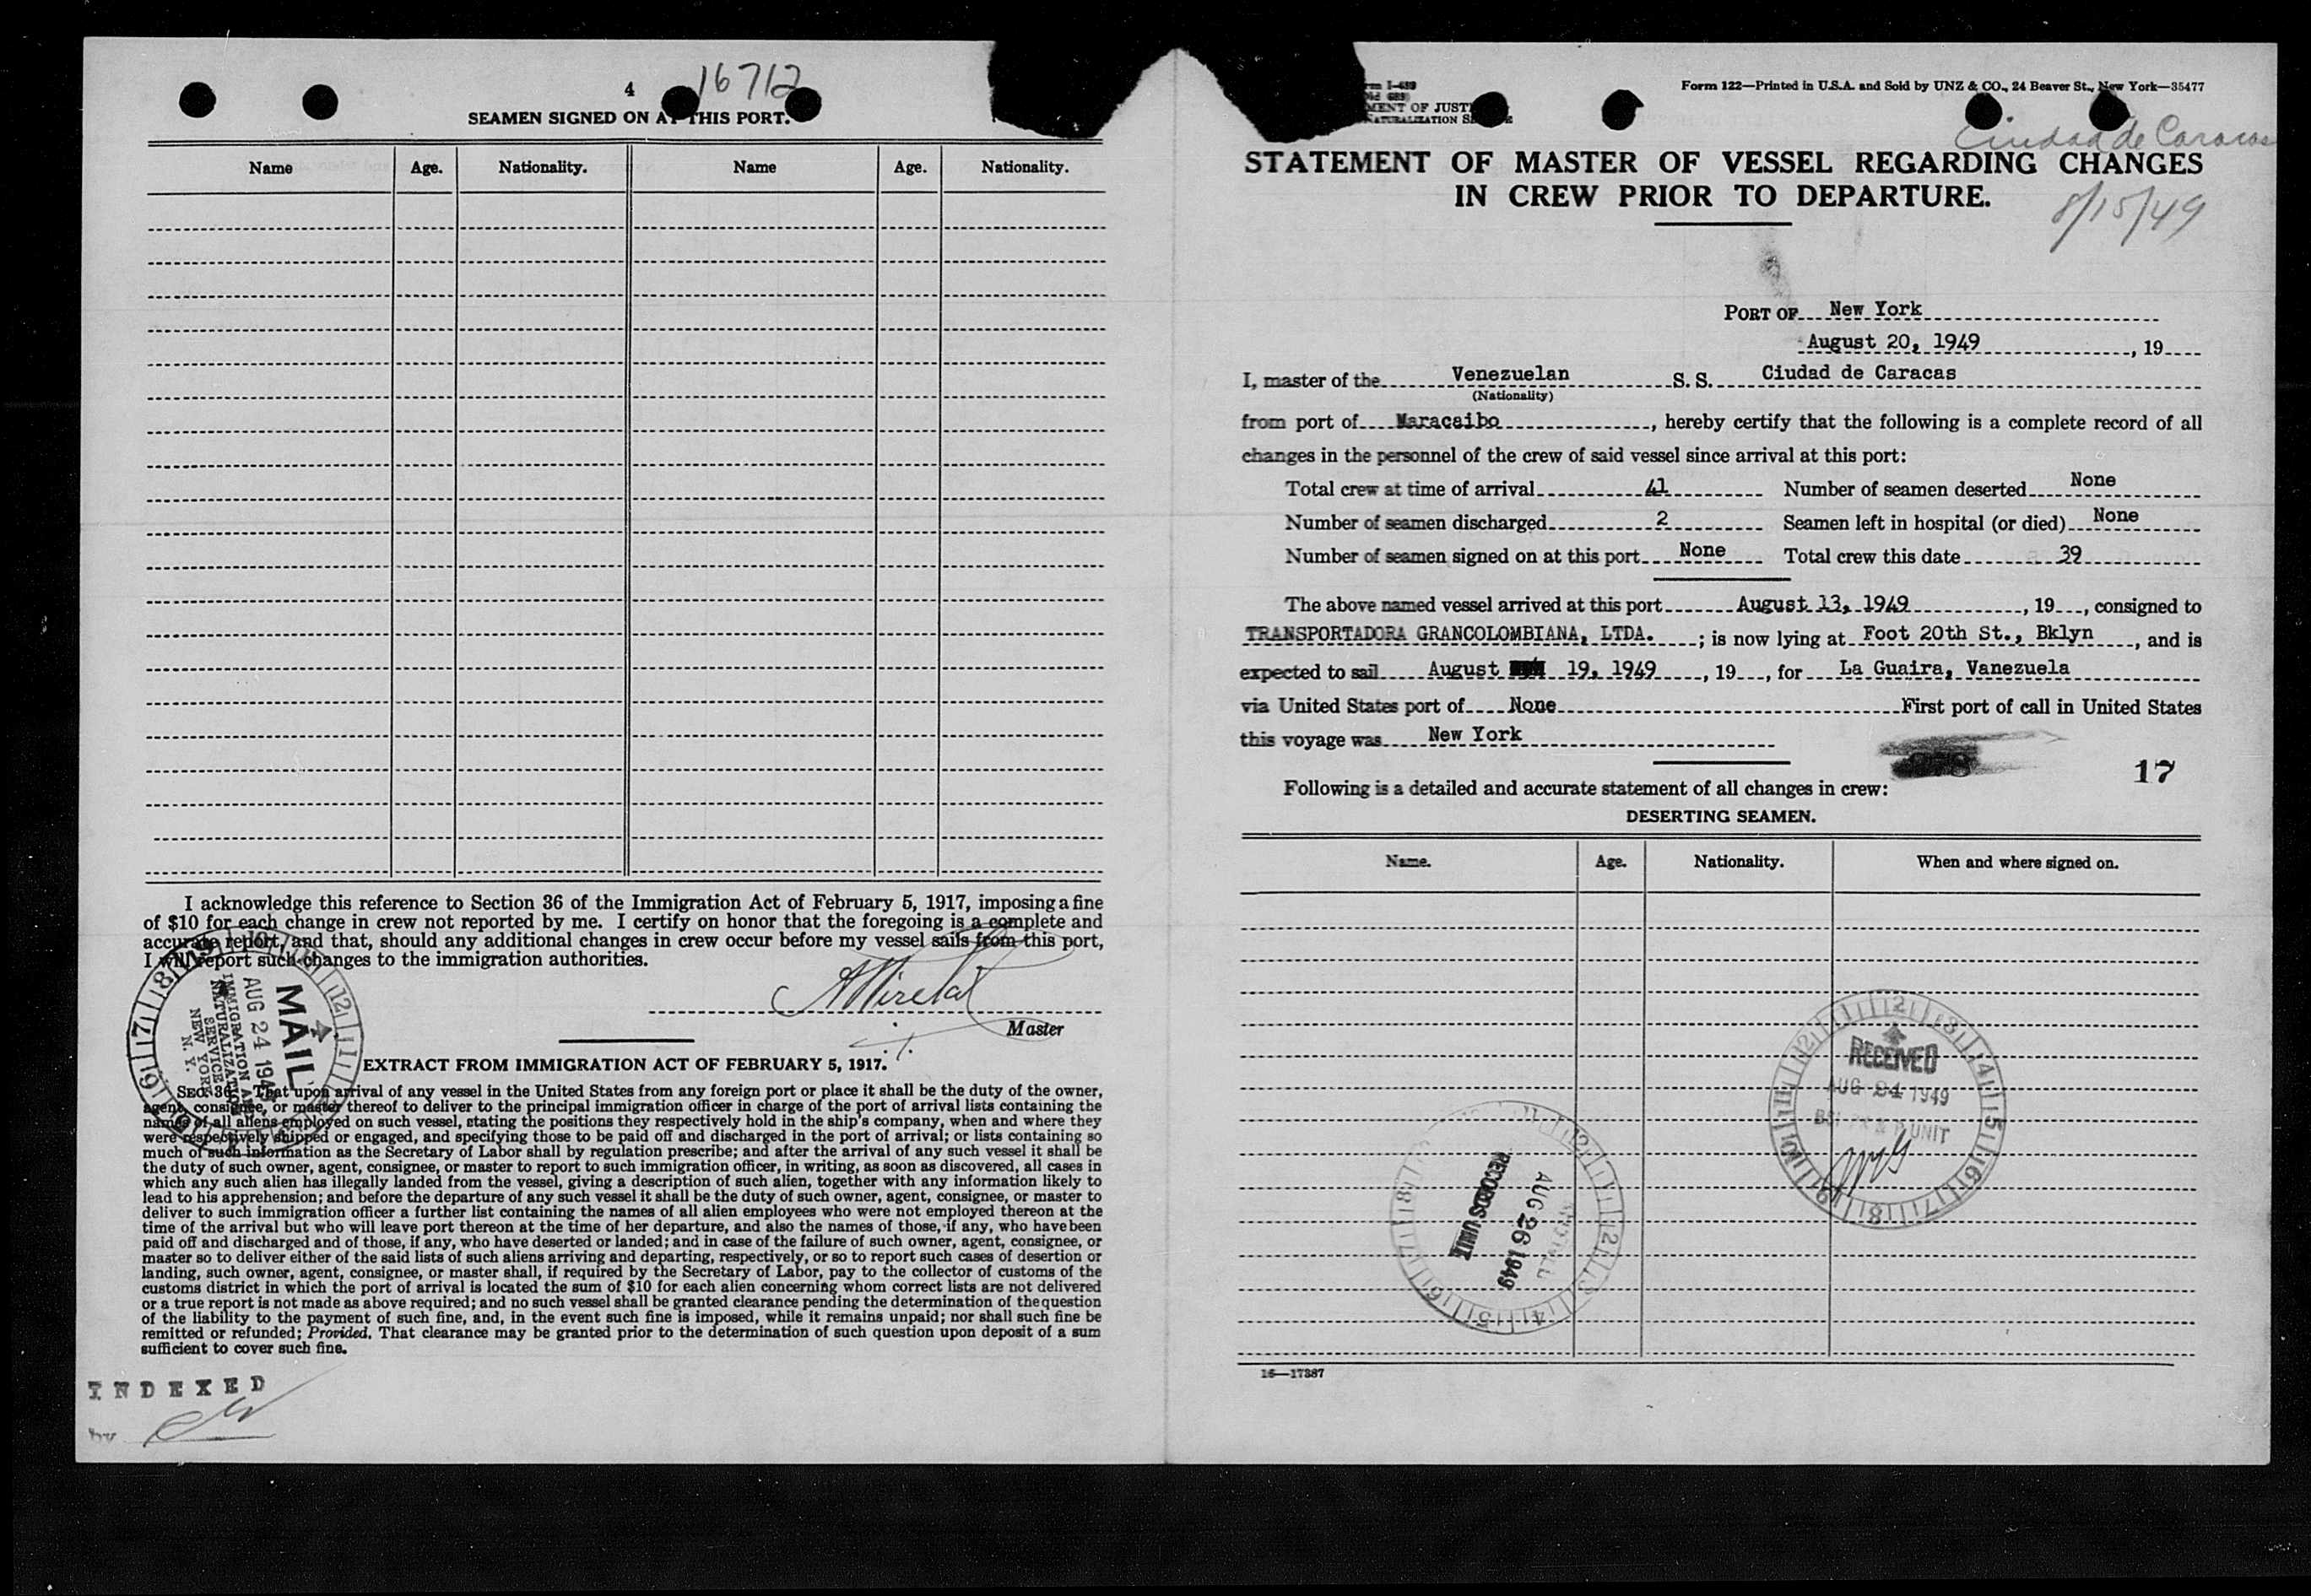 4
16712
SEAMEN SIGNED ON AT THIS PORT.
Name Age. Nationality. Name Age. Nationality.
I acknowledge this reference to Section 36 of the Immigration Act of February 5, 1917, imposing a fine
of $10 for each change in crew not reported by me. I certify on honor that the foregoing is a complete and
accurate report, and that, should any additional changes in crew occur before my vessel sails from this port,
I will report such changes to the immigration authorities.
Master
MAIL
AUG 24 194
IMMIGRATION AND
NATURALIZATION
SERVICE
NEW YORK
N. Y.
EXTRACT FROM IMMIGRATION ACT OF FEBRUARY 5, 1917.
SEC. 36. That upon arrival of any vessel in the United States from any foreign port or place it shall be the duty of the owner,
agent, consignee, or master thereof to deliver to the principal immigration officer in charge of the port of arrival lists containing the
names of all aliens employed on such vessel, stating the positions they respectively hold in the ship's company, when and where they
were respectively shipped or engaged, and specifying those to be paid off and discharged in the port of arrival; or lists containing so
much of such information as the Secretary of Labor shall by regulation prescribe; and after the arrival of any such vessel it shall be
the duty of such owner, agent, consignee, or master to report to such immigration officer, in writing, as soon as discovered, all cases in
which any such alien has illegally landed from the vessel, giving a description of such alien, together with any information likely to
lead to his apprehension; and before the departure of any such vessel it shall be the duty of such owner, agent, consignee, or master to
deliver to such immigration officer a further list containing the names of all alien employees who were not employed thereon at the
time of the arrival but who will leave port thereon at the time of her departure, and also the names of those, if any, who have been
paid off and discharged and of those, if any, who have deserted or landed; and in case of the failure of such owner, agent, consignee, or
master so to deliver either of the said lists of such aliens arriving and departing, respectively, or so to report such cases of desertion or
landing, such owner, agent, consignee, or master shall, if required by the Secretary of Labor, pay to the collector of customs of the
customs district in which the port of arrival is located the sum of $10 for each alien concerning whom correct lists are not delivered
or a true report is not made as above required; and no such vessel shall be granted clearance pending the determination of the question
of the liability to the payment of such fine, and, in the event such fine is imposed, while it remains unpaid; nor shall such fine be
remitted or refunded; Provided, That clearance may be granted prior to the determination of such question upon deposit of a sum
sufficient to cover such fine.
INDEXED
by
Form 122—Printed in U.S.A. and Sold by UNZ & CO., 24 Beaver St., New York—35477
MENT OF JUST
NATURALIZATION
Ciudad de Caracas
STATEMENT OF MASTER OF VESSEL REGARDING CHANGES
IN CREW PRIOR TO DEPARTURE.
8/15/49
PORT OF New York
August 20, 1949, 19
I, master of the Venezuelan S. S. Ciudad de Caracas
(Nationality)
from port of Maracaibo, hereby certify that the following is a complete record of all
changes in the personnel of the crew of said vessel since arrival at this port:
Total crew at time of arrival 41 Number of seamen deserted None
Number of seamen discharged 2 Seamen left in hospital (or died) None
Number of seamen signed on at this port None Total crew this date 39
The above named vessel arrived at this port August 13, 1949, 19, consigned to
TRANSPORTADORA GRANCOLOMBIANA, LTDA.; is now lying at Foot 20th St., Bklyn, and is
expected to sail August 19, 1949, 19, for La Guaira, Vanezuela
via United States port of None First port of call in United States
this voyage was New York
17
Following is a detailed and accurate statement of all changes in crew:
DESERTING SEAMEN.
Name. Age. Nationality. When and where signed on.
RECEIVED
AUG 24 1949
UNIT
RECORDS UNIT
AUG 26 1949
16—17387